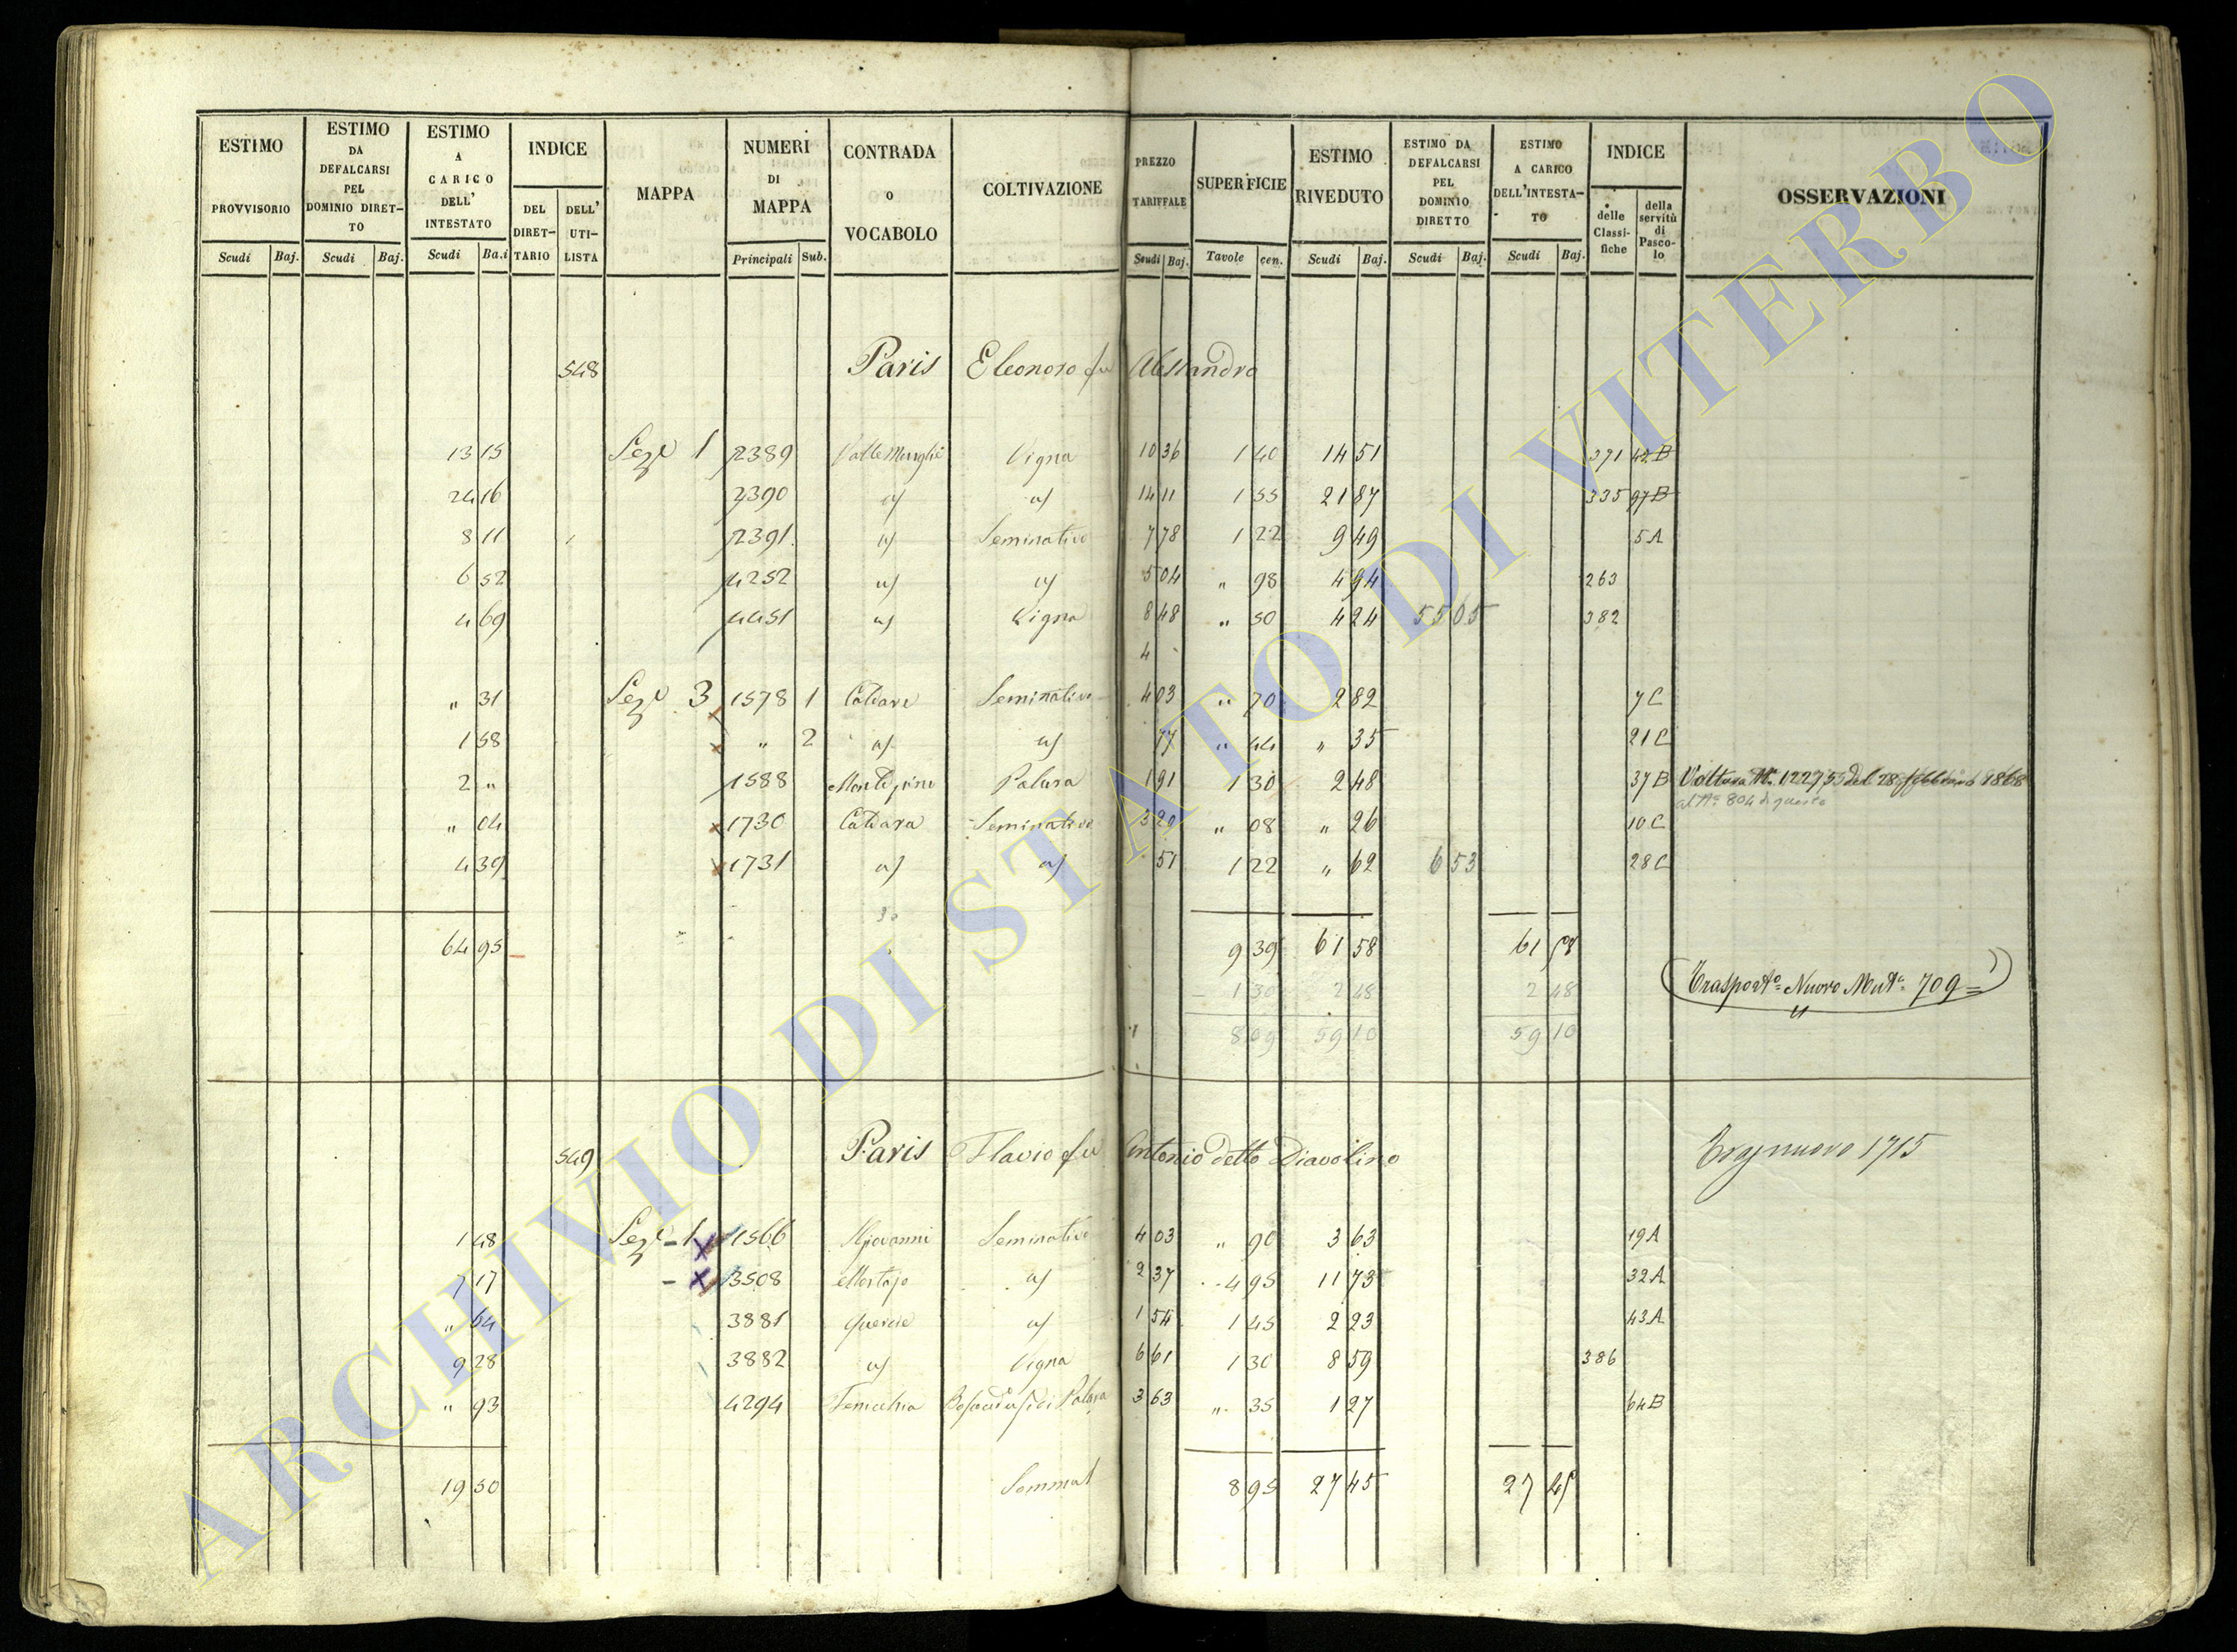 ESTIMO PROVVISORIO Scudi Baj.
ESTIMO DA DEFALCARSI PEL DOMINIO DIRET-TO Scudi Baj.
ESTIMO A CARICO DELL' INTESTATO Scudi Ba.i
INDICE DEL DIRET-TARIO DELL' UTI-LISTA
MAPPA
NUMERI DI MAPPA Principali Sub.
CONTRADA o VOCABOLO
COLTIVAZIONE
PREZZO TARIFFALE Scudi Baj.
SUPERFICIE Tavole cen.
ESTIMO RIVEDUTO Scudi Baj.
ESTIMO DA DEFALCARSI PEL DOMINIO DIRETTO Scudi Baj.
ESTIMO A CARICO DELL'INTESTA-TO Scudi Baj.
INDICE delle Classi-fiche della servitù di Pasco-lo
OSSERVAZIONI
548 Paris Eleonoro fu Alessandro
13 15 Sez.e 1 2389 Vigna 10 36 1 40 14 51 371 42 B
24 16 2390 a/ a/ 14 11 1 55 21 87 335 97 B
8 11 2391 a/ Seminativo 7 78 1 22 9 49 5 A
6 52 4252 a/ a/ 5 04 " 98 4 94 263
4 69 4451 a/ Vigna 8 48 " 50 4 24 55 05 382
4
" 31 Sez.e 3 1578 1 Seminativo 4 03 " 70 2 82 7 C
1 58 " 2 a/ a/ 77 " 44 " 35 21 C
2 " 1588 Palura 1 91 1 30 2 48 37 B Voltura N. 12275 del 28 febbraio 1868
al N. 804 di questo
" 04 1730 Caldara Seminativo 3 20 " 08 " 26 10 C
4 39 1731 a/ a/ 51 1 22 " 62 6 53 28 C
64 95 9 39 61 58 61 58
1 30 2 48 2 48 Trasporto Nuovo Mut. 709
8 09 59 10 59 10
549 Paris Flavio fu Antonio detto Diavolino Tras nuovo 1715
1 48 Sez.e 1 1566 Seminativo 4 03 " 90 3 63 19 A
7 17 3508 a/ 2 37 4 95 11 73 32 A
" 64 3881 Quercie a/ 1 54 1 45 2 23 43 A
9 28 3882 a/ Vigna 6 61 1 30 8 59 386
" 93 4294 3 63 " 35 1 27 64 B
19 50 Sommat 8 95 27 45 27 45
ARCHIVIO DI STATO DI VITERBO